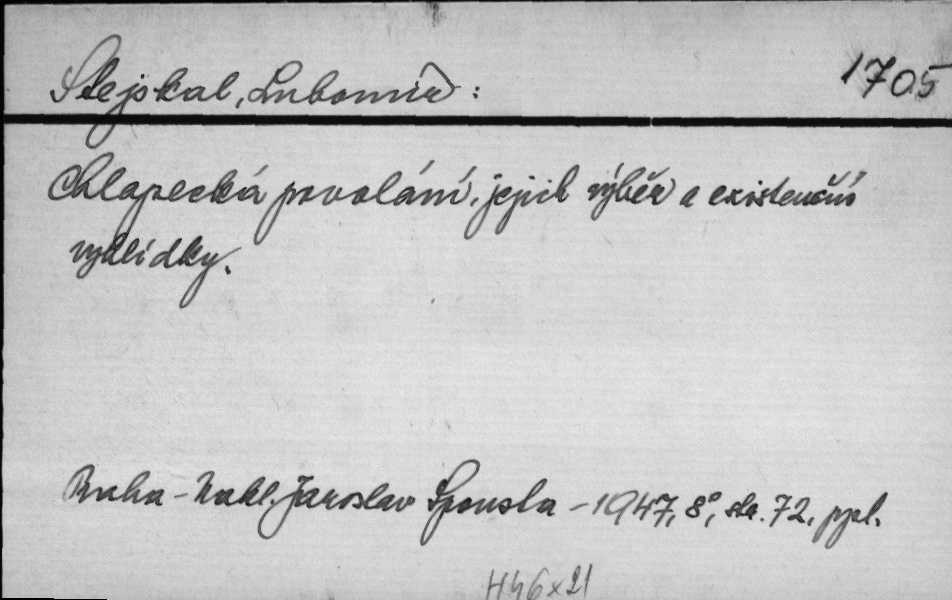 Stejskal, Lubomír: 1705
Chlapecká povolání, jejich výběr a existenční
vyhlídky.
Praha - Nakl. Jaroslav Spousta - 1947, 8°, str. 72, ppl.
H46x21